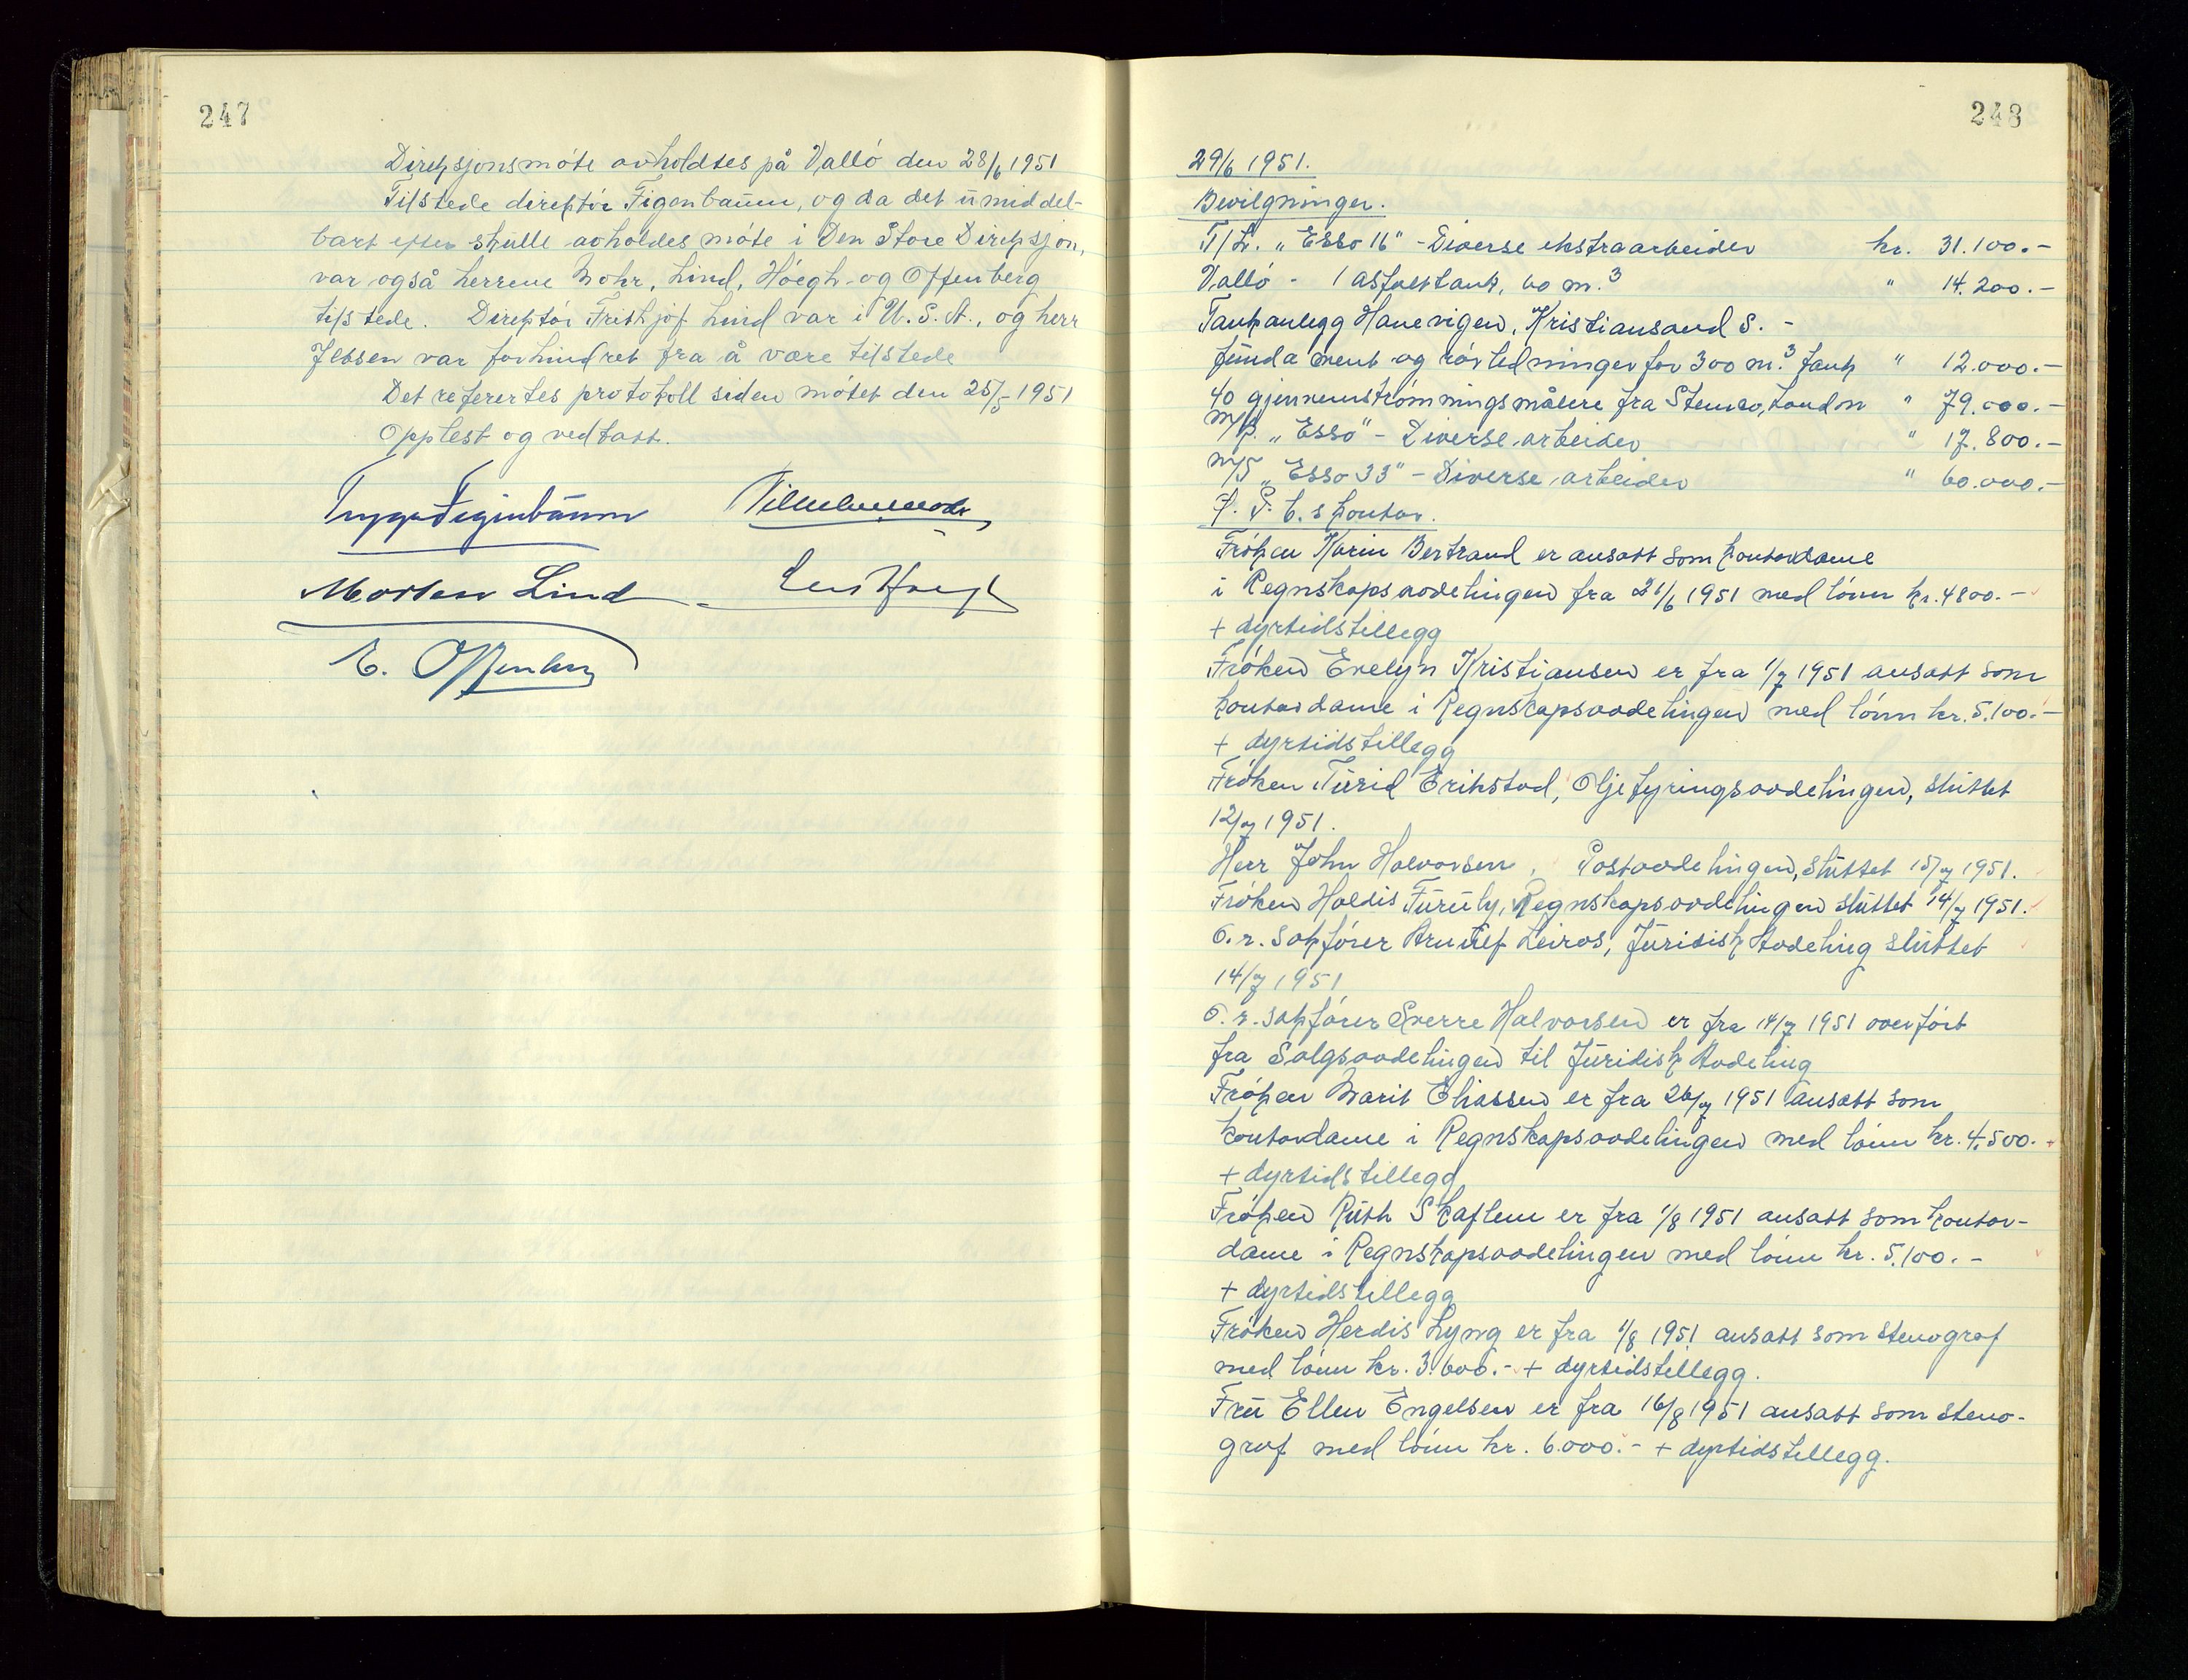 247
Direksjonsmöte avholdtes på Vallö den 28/6 1951
Tilstede direktör Figenbaum, og da det umiddel-
bart efter skulle avholdes möte i Den Store Direksjon,
var også herrene Mohr, Lind, Höegh og Offenberg
tilstede. Direktör Frithjof Lind var i U.S.A., og herr
Jebsen var forhindret fra å være tilstede
Det refererted protokoll siden mötet den 25/5 1951
Opplest og vedtatt.
Trygve Figenbaum
Morten Lind
E. Offenberg
248
29/6 1951.
Bevilgninger.
T/L. „Esso 16" - Diverse ekstraarbeider kr. 31.100.-
Vallö - 1 asfalttank, 60 m.3 " 14.200.-
Tankanlegg Hanevigen, Kristiansand S. -
fundament og rörledninger for 300 m.3 tank " 12.000.-
40 gjennemströmningsmålere fra Stemco, London " 79.000.-
M/P. „Esso" - Diverse arbeider " 17.800.-
M/S „Esso 33" - Diverse arbeider " 60.000.-
kontor.
Fröken Karin Bertrand er ansatt som kontordame
i Regnskapsavdelingen fra 21/6 1951 med lönn kr. 4800.-
+ dyrtidstillegg
Fröken Evelyn Kristiansen er fra 1/7 1951 ansatt som
kontordame i Regnskapsavdelingen med lönn kr. 5.100.-
+ dyrtidstillegg
Fröken Turid Erikstad, Oljefyringsavdelingen, sluttet
12/7 1951.
Herr John Halvorsen, Postavdelingen, sluttet 15/7 1951.
Fröken Haldis Furuly, Regnskapsavdelingen sluttet 14/7 1951.
O.r. sakförer Arnulf Leiros, Juridisk Avdeling sluttet
14/7 1951
O.r. sakförer Sverre Halvorsen er fra 14/7 1951 overfört
fra Salgsavdelingen til Juridisk Avdeling
Fröken Marit Eliassen er fra 26/7 1951 ansatt som
kontordame i Regnskapsavdelingen med lönn kr. 4.500.-
+ dyrtidstillegg
Fröken Ruth Skaflem er fra 1/8 1951 ansatt som kontor-
dame i Regnskapsavdelingen med lönn kr. 5.100.-
+ dyrtidstillegg
Fröken Herdis Lyng er fra 1/8 1951 ansatt som stenograf
med lönn kr. 3.600.- + dyrtidstillegg.
Fru Ellen Engelsen er fra 16/8 1951 ansatt som steno-
graf med lönn kr. 6.000.- + dyrtidstillegg.